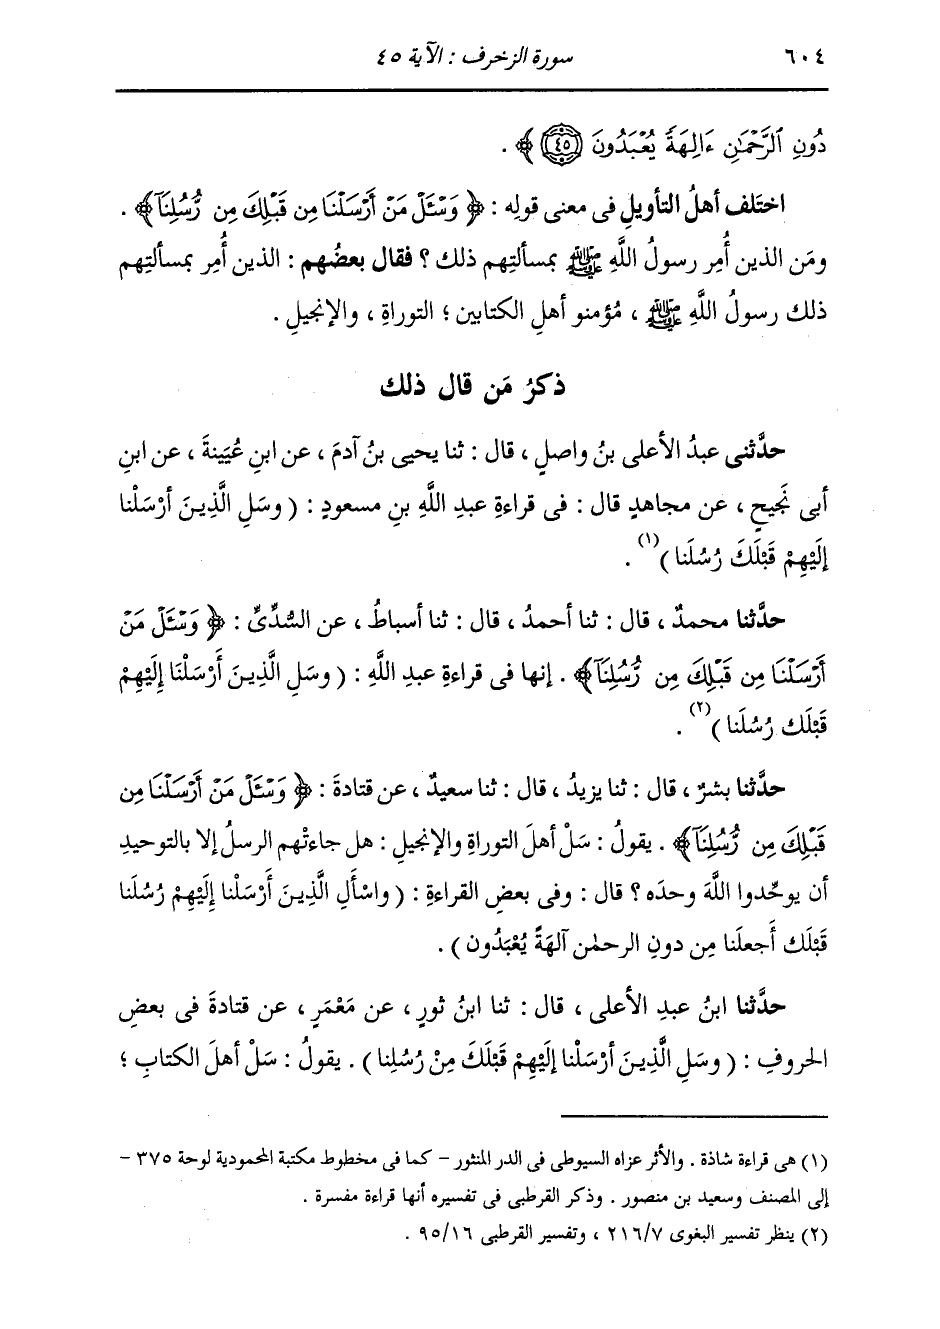 ٦٠٤ سورة الزخرف : الآية ٤٥
دُونِ ٱلرَّحْمَٰنِ ءَالِهَةً يُعْبَدُونَ ﴿٤٥﴾ ﴾ .
اختَلف أهلُ التأويلِ فى معنى قولِه : ﴿ وَسْـَٔلْ مَنْ أَرْسَلْنَا مِن قَبْلِكَ مِن رُّسُلِنَآ﴾ .
ومَن الذين أُمِر رسولُ اللَّهِ ﷺ بمسألتِهم ذلك ؟ فقال بعضُهم : الذين أُمِر بمسألتِهم
ذلك رسولُ اللَّهِ ﷺ ، مُؤمنو أهلِ الكتابين ؛ التوراةِ ، والإنجيلِ .
ذكرُ مَن قال ذلك
حدَّثنى عبدُ الأعلى بنُ واصلٍ ، قال : ثنا يحيى بنُ آدمَ ، عن ابنِ عُيَينةَ ، عن ابنِ
أبى نَجيحٍ ، عن مجاهدٍ قال : فى قراءةِ عبدِ اللَّهِ بنِ مسعودٍ : ( وسَلِ الَّذِينَ أرْسَلْنا
إلَيْهِمْ قَبْلَكَ رُسُلَنا )(١) .
حدَّثنا محمدٌ ، قال : ثنا أحمدُ ، قال : ثنا أسباطُ ، عن السُّدِّىِّ : ﴿ وَسْـَٔلْ مَنْ
أَرْسَلْنَا مِن قَبْلِكَ مِن رُّسُلِنَآ﴾ . إنها فى قراءةِ عبدِ اللَّهِ : ( وسَلِ الَّذِينَ أَرْسَلْنَا إلَيْهِمْ
قَبْلَك رُسُلَنا )(٢) .
حدَّثنا بشرٌ ، قال : ثنا يزيدُ ، قال : ثنا سعيدٌ ، عن قتادةَ : ﴿ وَسْـَٔلْ مَنْ أَرْسَلْنَا مِن
قَبْلِكَ مِن رُّسُلِنَآ﴾ . يقولُ : سَلْ أهلَ التوراةِ والإنجيلِ : هل جاءتْهم الرسلُ إلا بالتوحيدِ
أن يوحِّدوا اللَّهَ وحدَه ؟ قال : وفى بعضِ القراءةِ : ( واسْأَلِ الَّذِينَ أَرْسَلْنا إلَيْهِمْ رُسُلَنا
قَبْلَك أَجعلَنا مِن دونِ الرحمٰن آلهةً يُعْبَدُون ) .
حدَّثنا ابنُ عبدِ الأعلى ، قال : ثنا ابنُ ثورٍ ، عن مَعْمَرٍ ، عن قتادةَ فى بعضِ
الحروفِ : ( وسَلِ الَّذِينَ أرْسَلْنا إلَيْهِمْ قَبْلَكَ مِنْ رُسُلِنا ) . يقولُ : سَلْ أهلَ الكتابِ ؛
(١) هى قراءة شاذة . والأثر عزاه السيوطى فى الدر المنثور - كما فى مخطوط مكتبة المحمودية لوحة ٣٧٥ -
إلى المصنف وسعيد بن منصور . وذكر القرطبى فى تفسيره أنها قراءة مفسرة .
(٢) ينظر تفسير البغوى ٢١٦/٧ ، وتفسير القرطبى ٩٥/١٦ .